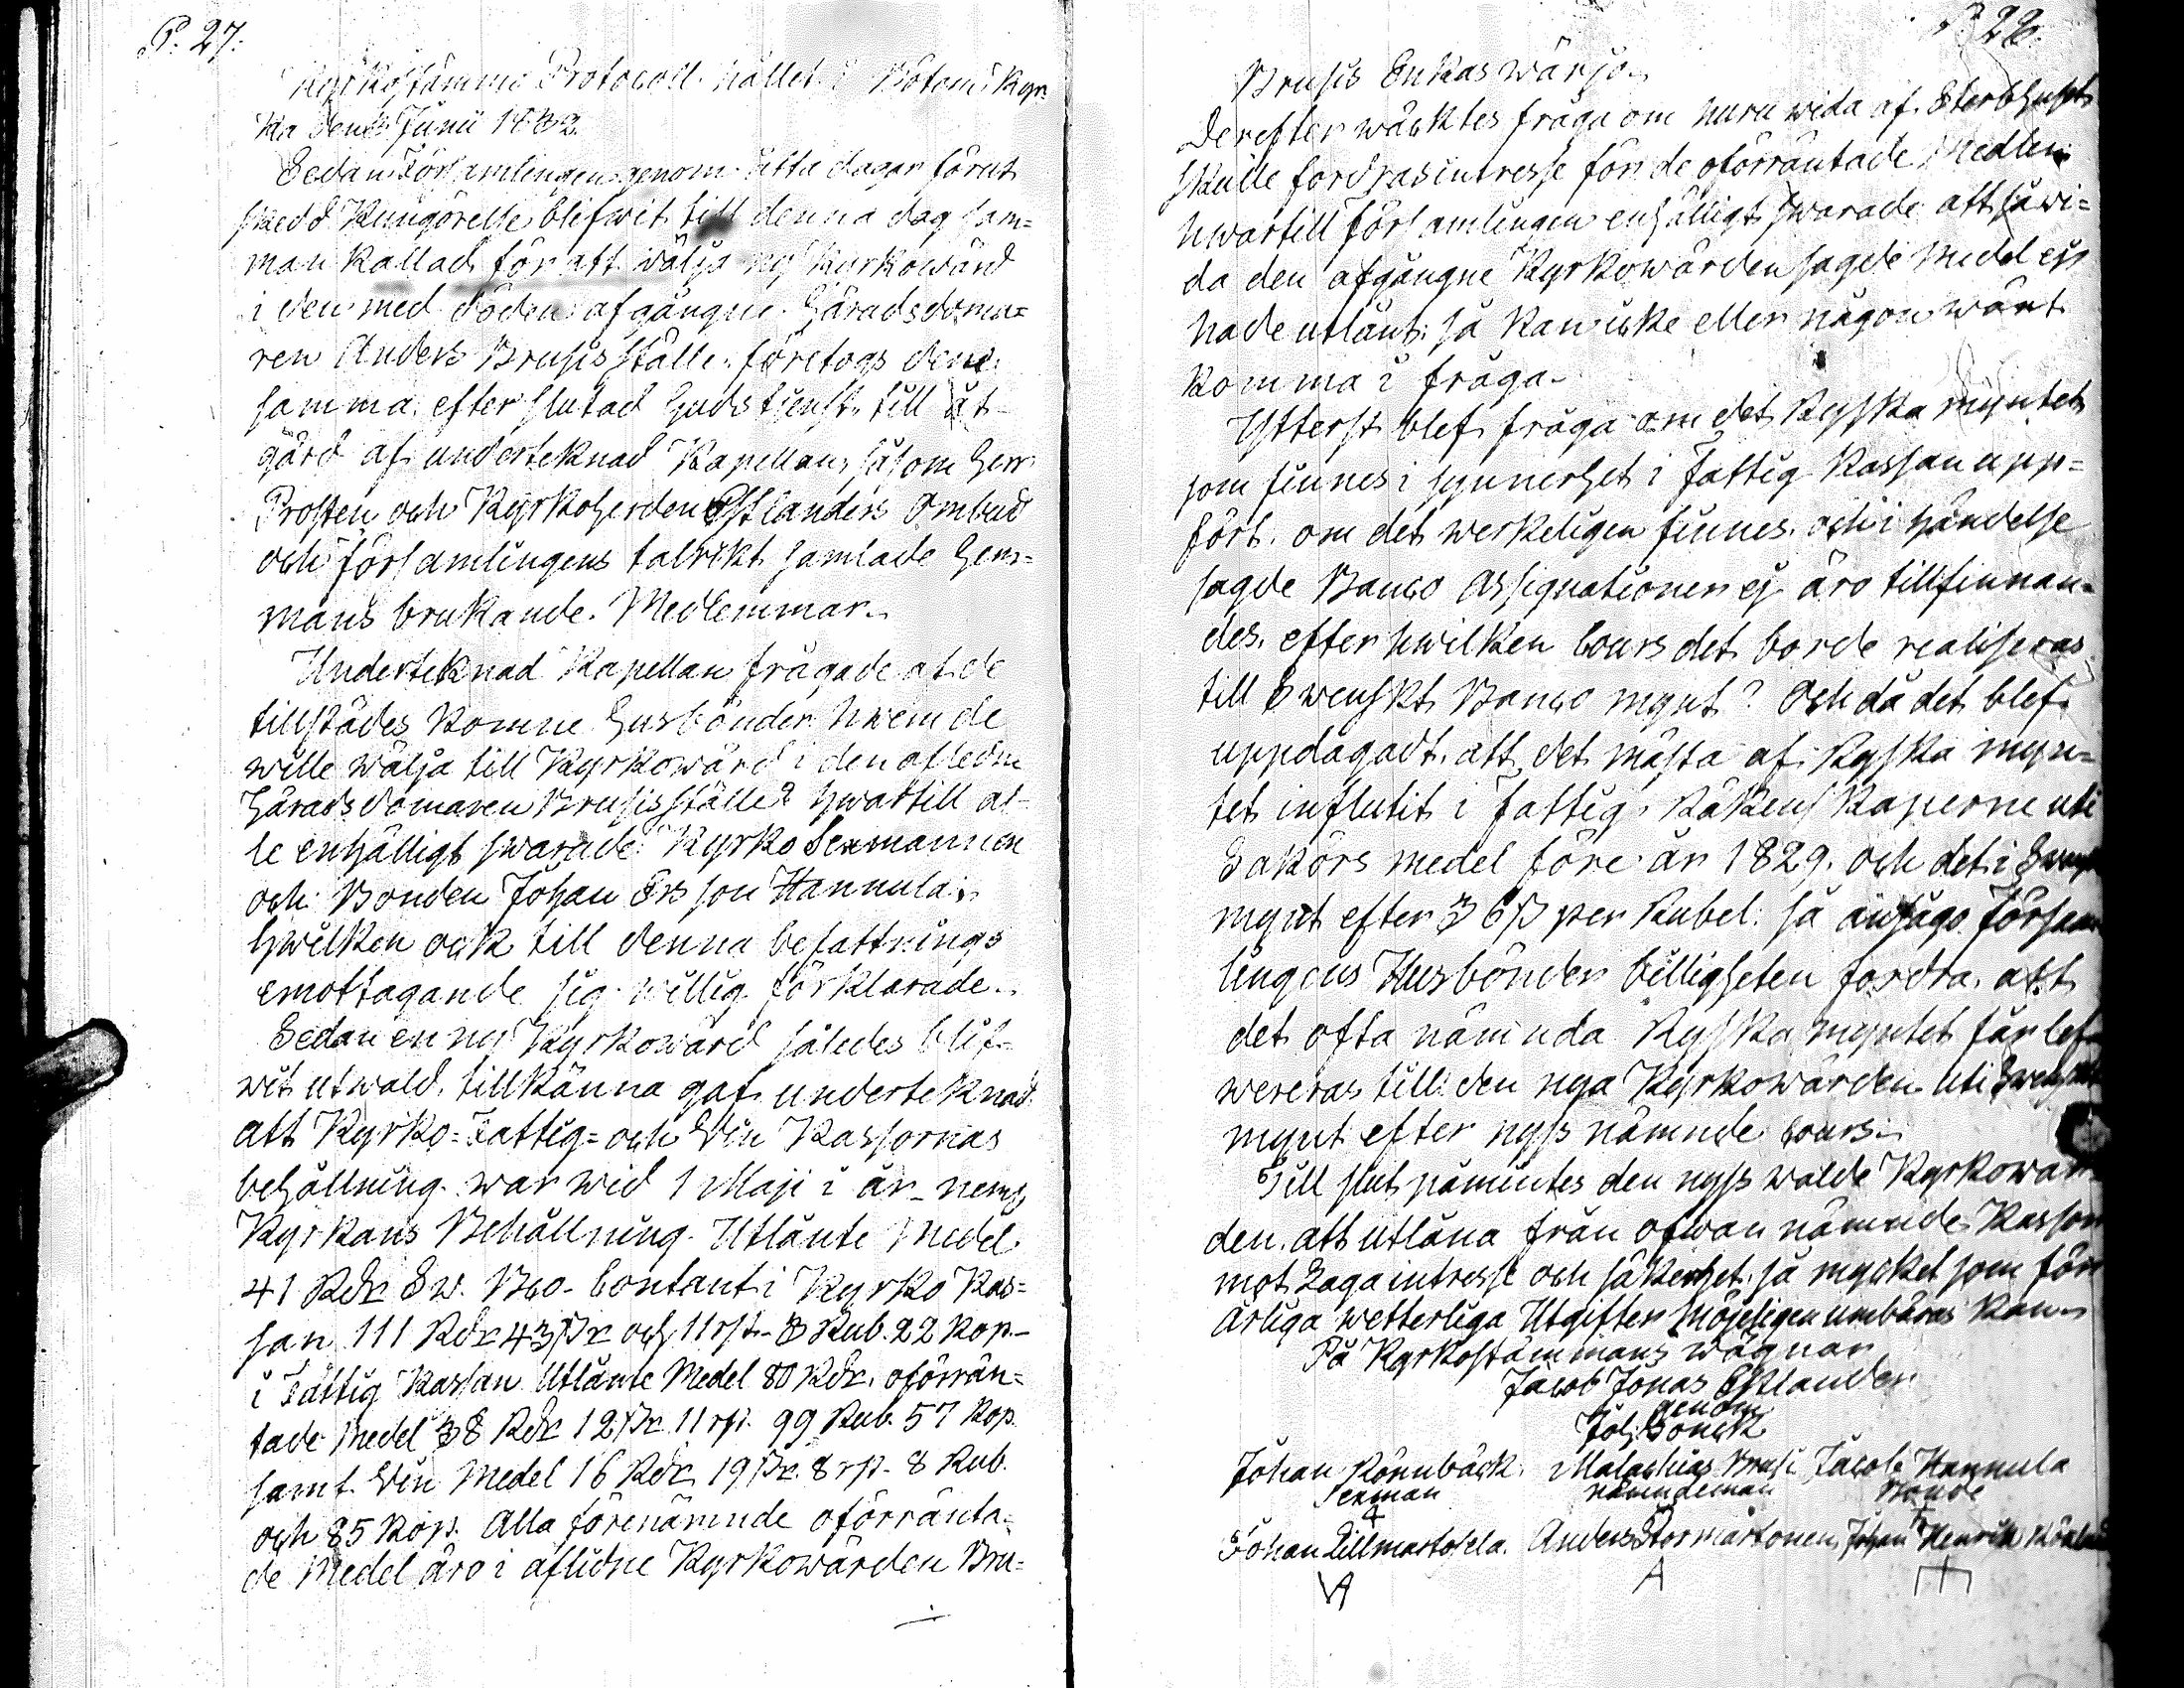 P. 27.
Kyrkostämmo Protocoll hållet i Wötom Kyr=
ka den Junii 1832.
Sedan Församlingen genom åtta dagar förut
skedd Kungörelse blifwit till denna dag sam=
man kallad för att wälja ny Kyrkowärd
i den med döden afgångne Häradsdoma=
ren Anders Brusis ställe, företogs den=
samma efter slutad Gudstjenst till åt=
gärd af undertecknad Kapellan, såsom Herr
Prosten och Kyrkoherden Estlanders Ombud
och församlingens talrikt samlade Hem=
mans brukande Medlemmar.
Undertecknad Kapellan frågade af de
tillstädes komne Husbönder hwem de
wille wälja till Kyrkowärd i den aflednе
Häradsdomaren Brusis ställe? hwartill al=
le enhälligt swarade Kyrko Sexmannen
och Bonden Johan Ersson Hannula;
hwilken ock till denna befattnings
emottagande sig willig förklarade.
Sedan en ny Kyrkowärd således blif=
wit utwald, tillkänna gaf undertecknad
att Kyrko= Fattig= och Vin Kassornas
behållning war wid 1 Maji i år, nemI.
Kyrkans Behållning. Utlånte Medel
41 Rdr Sw. Bco. Contant i Kyrko Kas=
san 111 Rdr 43 sk och 11 rst. 3 Rub. 22 Kop.
i Fattig Kassan Utlånte Medel 80 Rdr. oförrän=
tade Medel 38 Rdr 12 sk 11 rst. 99 Rub. 57 Kop.
samt Vin Medel 16 Rdr 19 sk 8 rst. 8 Rub.
och 85 Kop. Alla förenämnde oförränta=
de Medel äro i aflidne Kyrkowärden Bru=
P. 28.
Brusis Enkas wärjo.
Derefter wäcktes fråga om huru wida af Sterbhuset
skulle fordras intresse för de oförräntade Medlen
hwartill församlingen enhälligt swarade att såwi=
da den afgångne Kyrkowärden sagde Medel ej
hade utlånt; så kan icke eller någon wärt
komma i fråga.
Ytterst blef fråga om det Ryska myntet
som finnes i synnerhet i Fattig Kassan upp=
fört, om det werkeligen finnes, och i händelse
sagde Banco Assignationer ej äro tillfinnan=
des, efter hwilken Cours det borde realiseras
till Swenskt Banco mynt? Och då det blef
uppdagadt, att det mästa af Ryska myn=
tet influtit i Fattig Räkenskaperne uti
Sakörs medel före år 1829. och det i Swenskt
mynt efter 36 sk per Rubel: så ansågo Försam
lingens Husbönder billigheten fordra, att
det ofta nämnda Ryska myntet får lef=
wereras till den nya Kyrkowärden uti Swenskt
mynt efter nyss nämnde cours.
Till slut påmintes den nyss walde Kyrkowär=
den, att utlåna från ofwan nämnde Kassor
mot Laga intresse och säkerhet, så mycket som för
årliga wetterliga Utgifter möjeligen umbäras kan.
På Kyrkostämmans wägnar
Jacob Jonas Estlander
genom
Joh: Bonck
Johan Rönnbäck. Malachias Brusi Jacob Hannula
Sexman nämndeman Bonde
Johan Lillmartosela. Anders Stormartonen Johan Henrik
A A